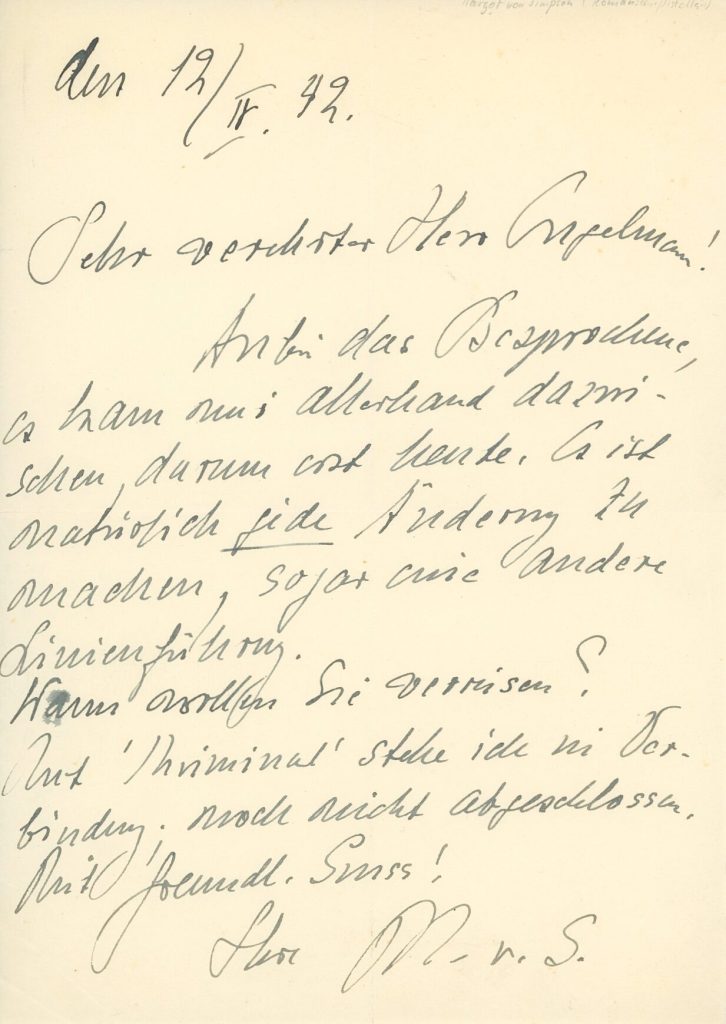 Margot von Simpson (Romanschriftstellerin)
den 12/IV. 42.
Sehr verehrter Herr Engelmann!
Anbei das Besprochene,
es kam mir allerhand dazwi-
schen, darum erst heute. Es ist
natürlich jede Änderung zu
machen, sogar eine andere
Linienführung.
Wann wollen Sie verreisen?
Mit 'Kriminal' stehe ich in Ver-
bindung, noch nicht abgeschlossen.
Mit freundl. Gruss!
Ihre M. v. S.